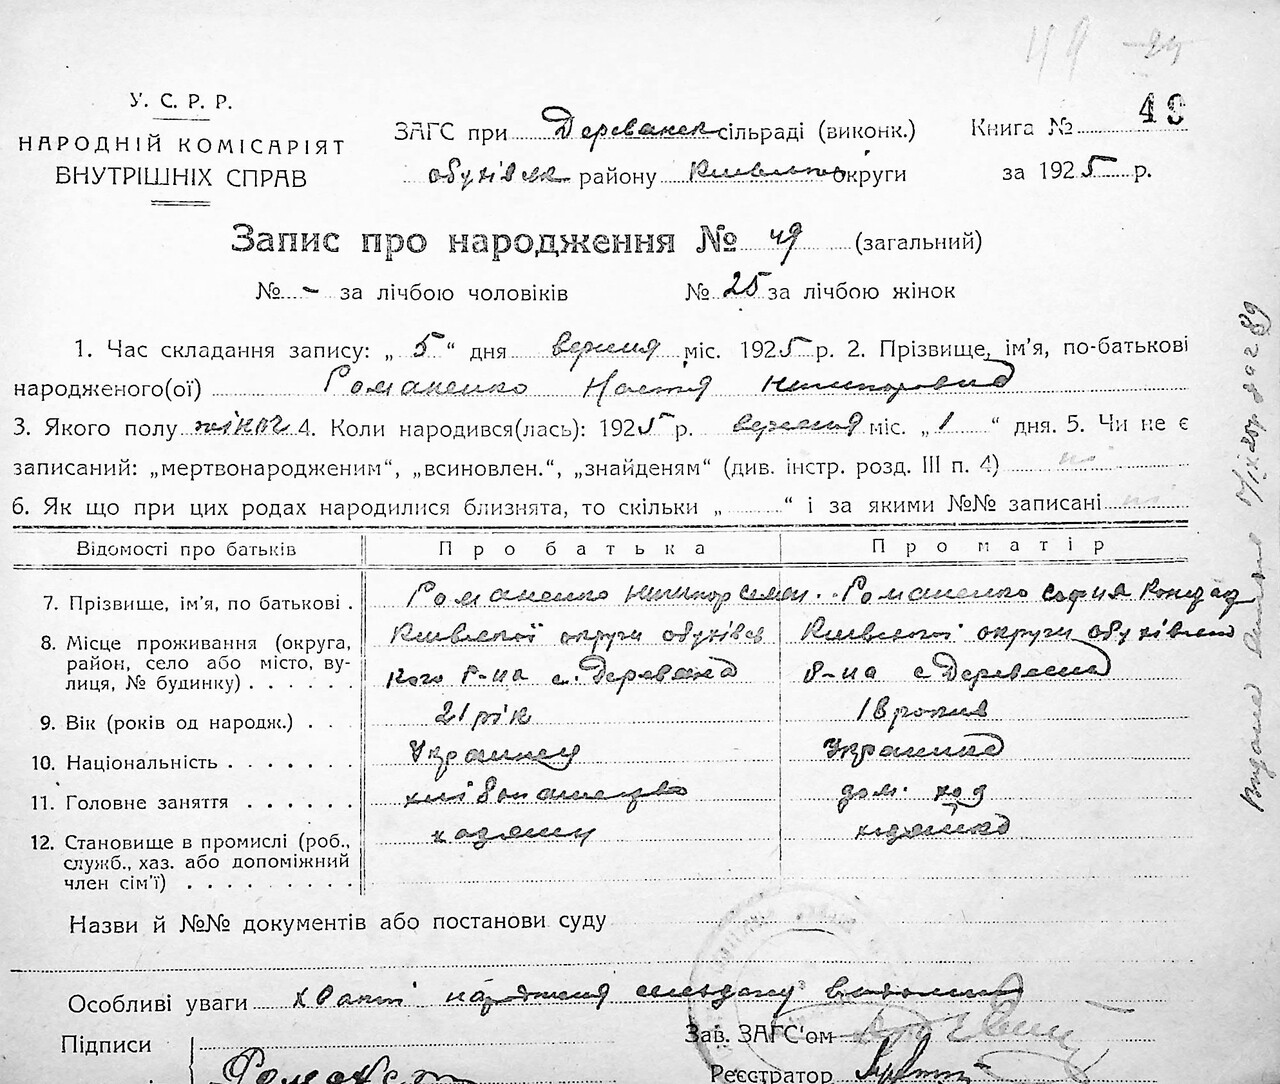 У. С. Р. Р.
НАРОДНІЙ КОМІСАРІЯТ
ВНУТРІШНІХ СПРАВ
49
ЗАГС при Дереванск сільраді (виконк.) Книга №
обухівск району Київської округи за 1925 р.
Запис про народження № 49 (загальний)
№ - за лічбою чоловіків № 25 за лічбою жінок
1. Час складання запису: „ 5 “ дня вересня міс. 1925 р. 2. Прізвище, ім’я, по-батькові
народженого(ої) Романенко Настія Ничипоровна
3. Якого полу жіноч 4. Коли народився(лась): 1925 р. вересня міс. „ 1 “ дня. 5. Чи не є
записаний: „мертвонародженим“, „всиновлен.“, „знайденям“ (див. інстр. розд. III п. 4) ні
6. Як що при цих родах народилися близнята, то скільки „ “ і за якими №№ записані ні
Відомості про батьків Про батька Про матір
7. Прізвище, ім’я, по батькові . Романенко Ничипор Семен. Романенко София Кондрат
8. Місце проживання (округа, район, село або місто, вулиця, № будинку) . . . . . .
Київської округи обухівсь
кого р-на с. Деревяна
Київської округи обухівського
р-на с. Деревяна
9. Вік (років од народж.) . . 21 рік 18 років
10. Національність . . . . . . . Украинец Украинка
11. Головне заняття . . . . . . хліборобство дом. ход
12. Становище в промислі (роб., служб., хаз. або допоміжний член сім’ї) . . . . . . . . . хозяин хозяйка
Назви й №№ документів або постанови суду
Особливі уваги факт народження сельраду
Зав. ЗАГС’ом
Підписи
Реєстратор